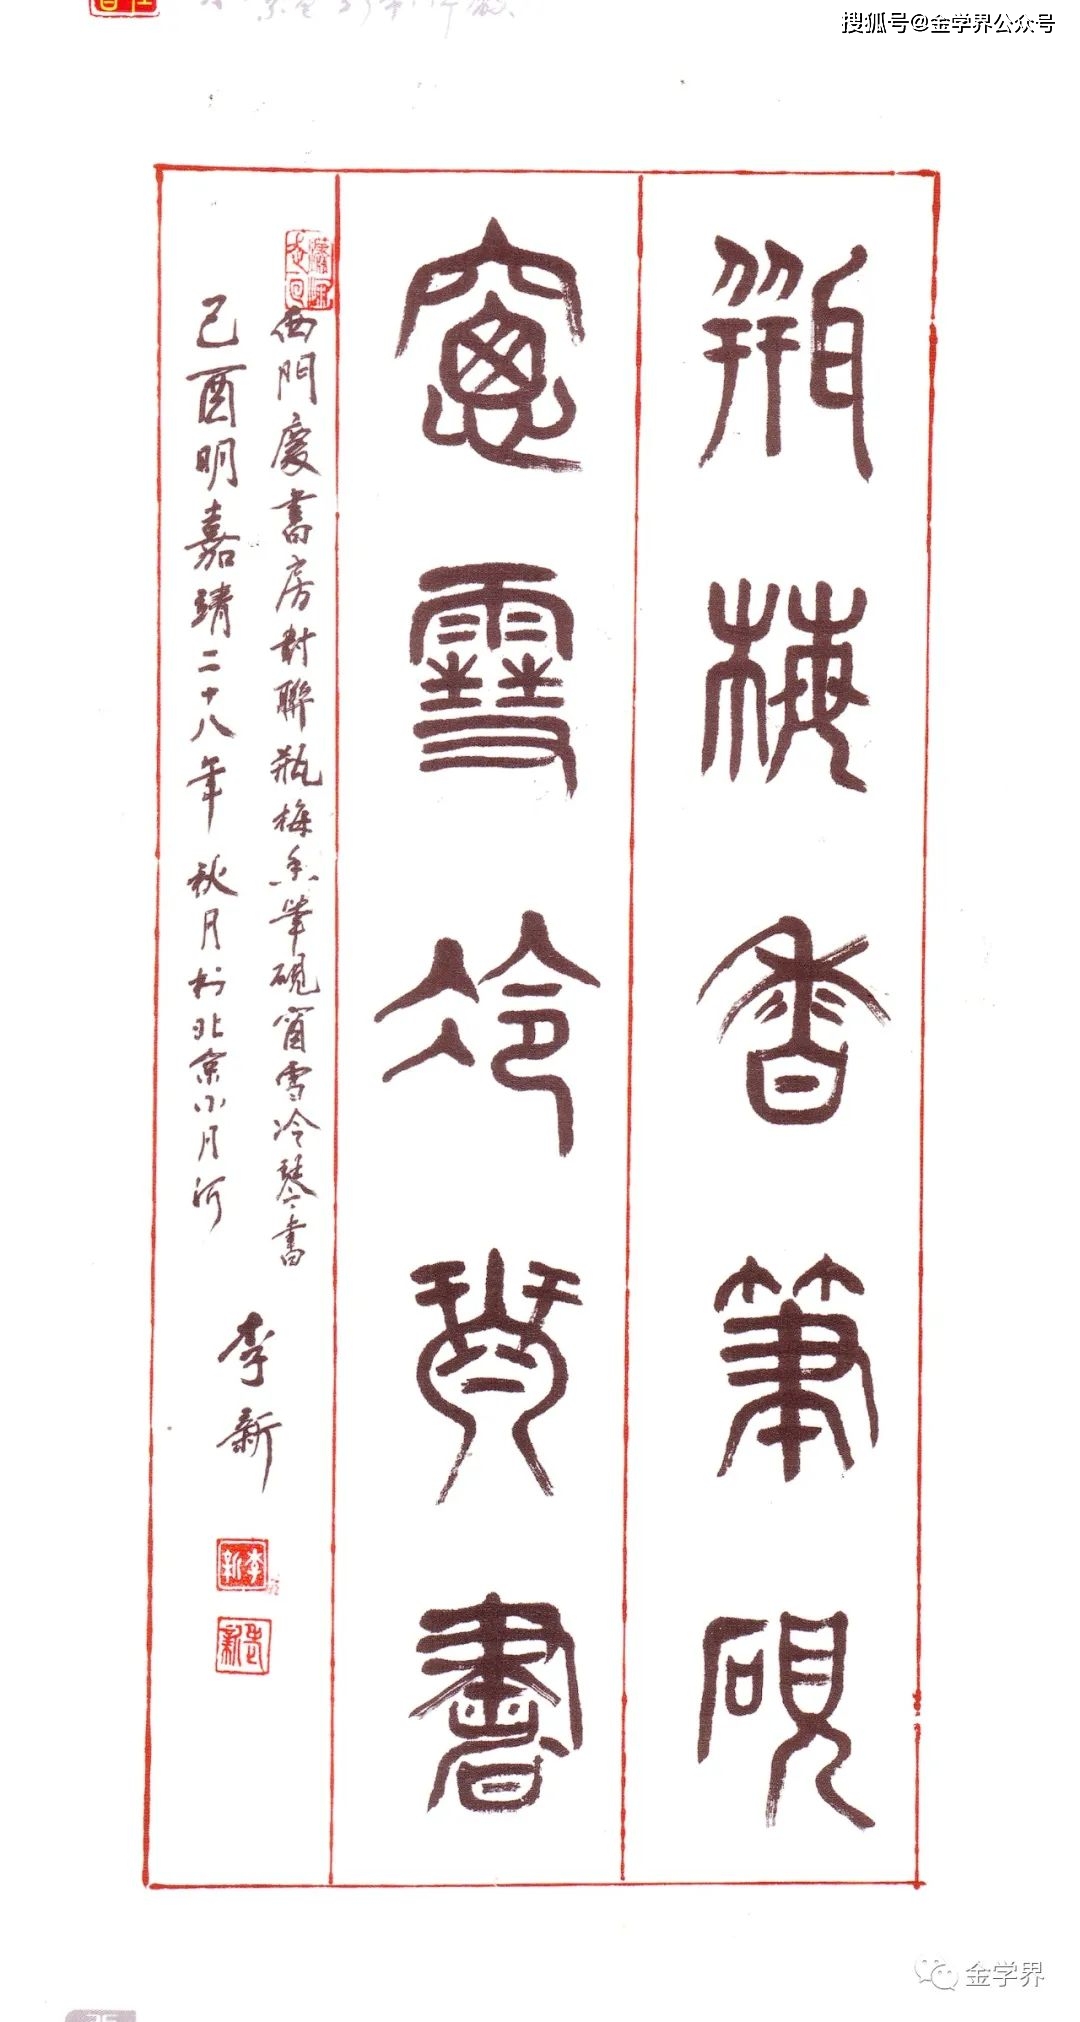 搜狐号@金学界公众号
缾梅香筆硯
窻雪冷琴書
西門慶書房對聯瓶梅香筆硯窗雪冷琴書
己酉明嘉靖二十八年秋月於北京小月河
李新
李新
金学界